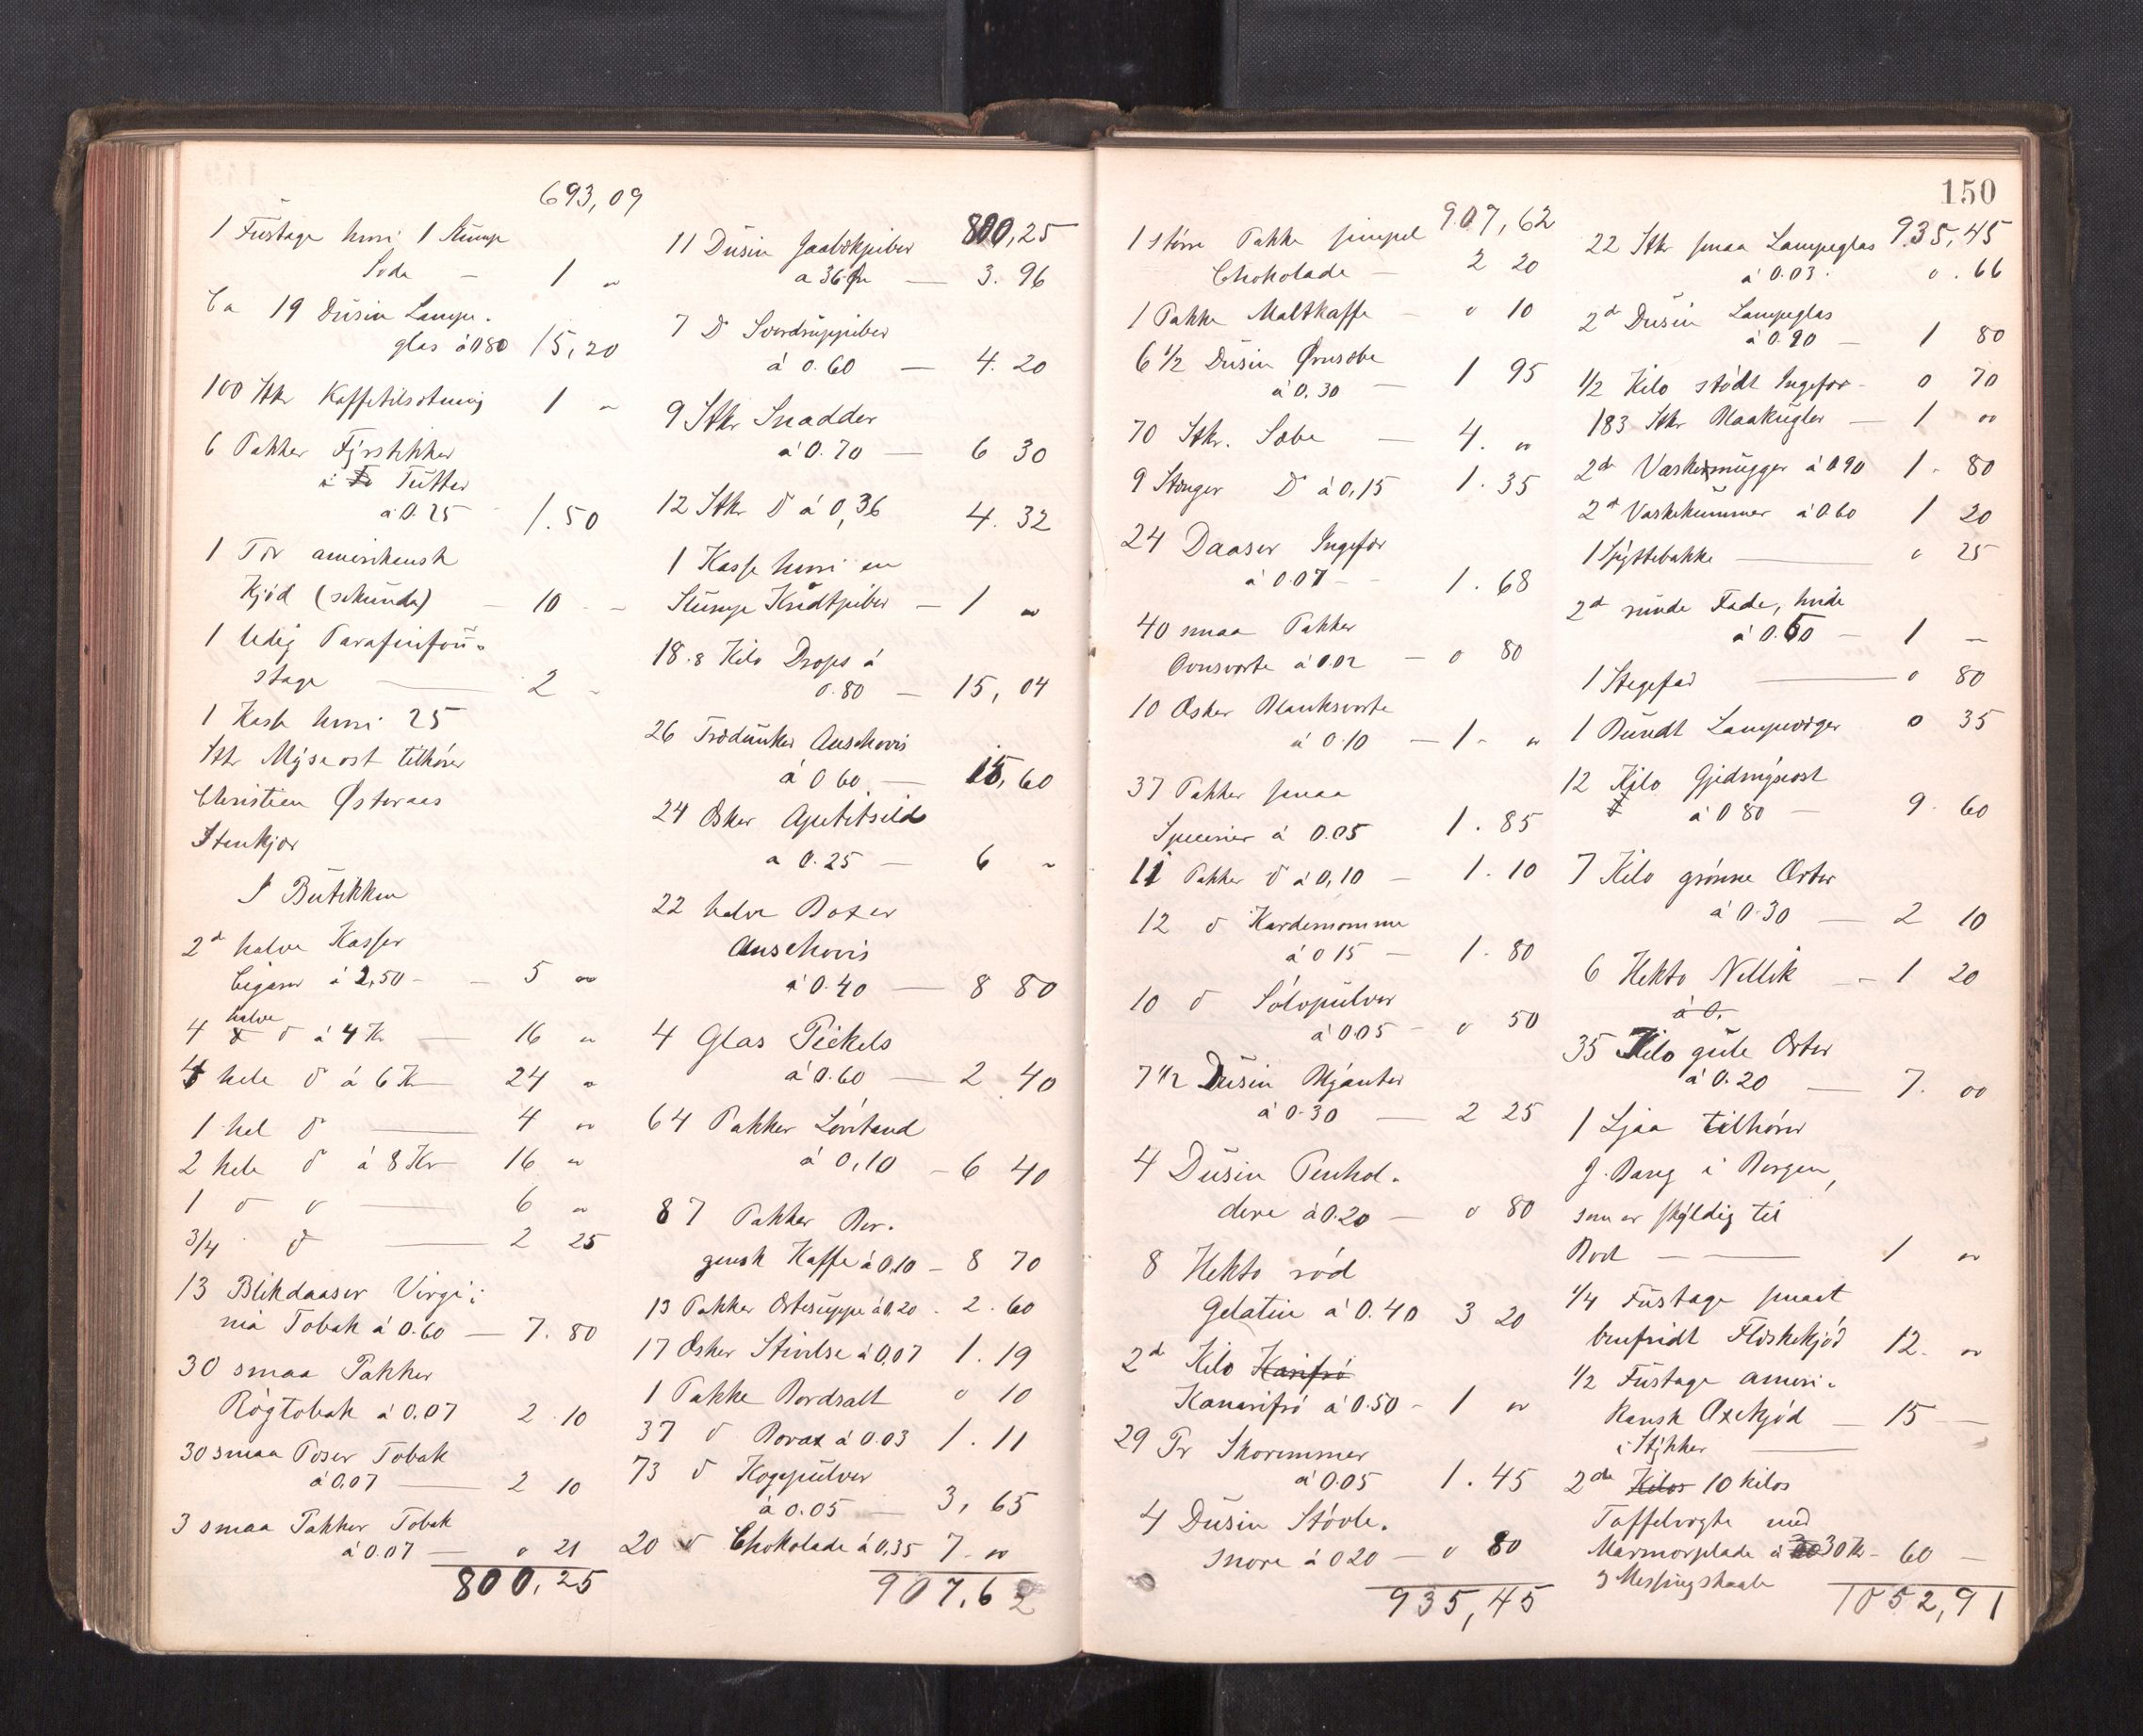 693,09
1 Fustage hvori 1 Slump
Soda - 1 "
Ca 19 Dusin Lampe-
glas á 0.80 15,20
100 Stkr Kaffetilsetning 1 "
6 Pakker Fyrstikker
i Tutter
á 0.25 1.50
1 Tdr amerikansk
Kjød (sekunda) - 10 - "
1 ledig Parafinfou-
stage — 2 "
1 Kasse hvori 25
Stkr Mysost tilhører
Christian Østeraas
Stenkjær
I Butikken
2 halve Kasser
Cigarer á 2,50 - 5 "
halve
4 d á 4 Kr — 16 "
4 hele d á 6 Kr 24 "
1 hel d — 4 "
2 hele d á 8 Kr 16 "
1 d d — 6 "
3/4 d — 2 25
13 Blikdaaser Virgi-
nia Tobak á 0.60 — 7.80
30 smaa Pakker
Røgtobak á 0.07 2.10
30 smaa Poser Tobak
á 0,07 — 2 10
3 smaa Pakker Tobak
á 0.07 — 0 21
800,25
800,25
11 Dusin
a 36 Øre — 3.96
7 D
á 0.60 — 4.20
9 Stkr Snadder
á 0.70 — 6 30
12 Stkr D á 0,36 4.32
1 Kasse hvori en
Slump Kridtpiber — 1 "
18.8 Kilo Drops á
0.80 — 15,04
26 Trædunker Anschovis
á 0 60 — 15,60
24 Esker Apetitsild
a 0.25 — 6 "
22 halve Boxer
Anschovis
á 0.40 — 8 80
4 Glas Pickels
á 0.60 — 2 40
64 Pakker Løvetand
á 0,10 - 6 40
87 Pakker Ber-
gensk Kaffe á 0,10 - 8 70
13 Pakker Ertesuppe á 0.20 - 2.60
17 Esker Stivelse á 0,07 1.19
1 Pakke Bordsalt 0 10
37 d Borax á 0.03 1.11
73 d Kogepulver
á 0.05 — 3,65
20 d Chokolade á 0,35 7 "
907,62
150
907,62
1 større Pakke simpel
Chokolade - 2 20
1 Pakke Maltkaffe - 0 10
6 1/2 Dusin Ørusæbe
á 0,30 — 1 95
70 Stkr. Sæbe — 4. "
9 Stænger D á 0,15 1.35
24 Daaser Ingefær
á 0.07 - 1.68
40 smaa Pakker
Ovnsværte á 0.02 - 0 80
10 Esker Blanksværte
á 0.10 — 1 - "
37 Pakker smaa
Specerier á 0.05 1.85
11 Pakker d á 0,10 - 1.10
12 d Kardemomme
á 0 15 — 1.80
10 d Sølvpulver
á 0.05 - 0 50
7 1/2 Dusin Blyanter
á 0.30 — 2 25
4 Dusin Penhol-
dere á 0.20 — 0 80
8 Hekto rød
Gelatin á 0.40 3 20
2 Kilo Kanifrø
Kanarifrø á 0.50 - 1 "
29 Pr Skoremmer
á 0.05 1.45
4 Dusin Støvle-
snore á 0 20 — 0 80
935,45
935,45
22 Stkr smaa Lampeglas
á 0.03 0.66
2 Dusin Lampeglas
á 0.90 — 1 80
1/2 Kilo stødt Ingefær - 0 70
183 Stkr Blaakugler — 1 "
2 Vaskemugger á 0.90 1 - 80
2 Vaskekummer á 0.60 1 20
1 Spyttebakke — 0 25
2 runde Fade, hvide
á 0.50 — 1 —
1 Stegefad — 0 80
1 Bundt Lampevæger 0 35
12 Kilo Gjedmysost
á 0 80 — 9.60
7 Kilo grønne Erter
á 0.30 — 2 10
6 Hekto Nellik — 1 20
á 0.
35 Kilo gule Erter
á 0.20 — 7. 00
1 Ljaa tilhører
J. Bang i Bergen,
som er skyldig til
Boet — 1 "
1/4 Fustage smaat
benfridt Flæskekjød 12. "
1/2 Fustage ameri-
kansk Oxekjød — 15 —
i Stykker —
2 Kilos 10 kilos
Taffelvægte med
Marmorplade á 30 Kr - 60 —
& Messingskaale
1052,91